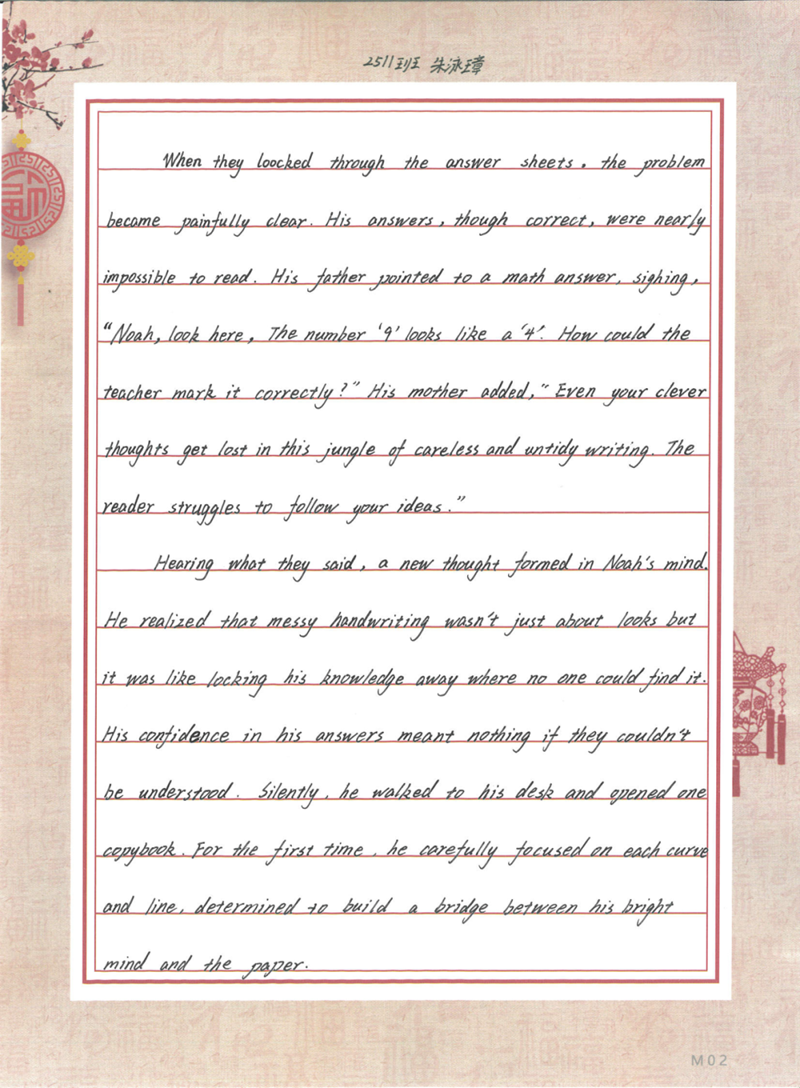 2511班 朱泳璋
When they loocked through the answer sheets, the problem
became painfully clear. His answers, though correct, were nearly
impossible to read. His father pointed to a math answer, sighing,
“Noah, look here, The number ‘9’ looks like a ‘4’. How could the
teacher mark it correctly?” His mother added, “Even your clever
thoughts get lost in this jungle of careless and untidy writing. The
reader struggles to follow your ideas.”
Hearing what they said, a new thought formed in Noah’s mind.
He realized that messy handwriting wasn’t just about looks but
it was like locking his knowledge away where no one could find it.
His confidence in his answers meant nothing if they couldn’t
be understood. Silently, he walked to his desk and opened one
copybook. For the first time, he carefully focused on each curve
and line, determined to build a bridge between his bright
mind and the paper.
M02